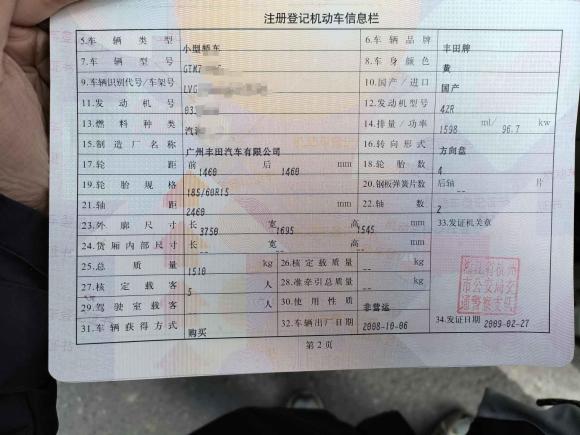 注册登记机动车信息栏
5.车辆类型 小型轿车 6.车辆品牌 丰田牌
7.车辆型号 GTM7 8.车身颜色 黄
9.车辆识别代号/车架号 LVG 10.国产/进口 国产
11.发动机号 03 12.发动机型号 4ZR
13.燃料种类 汽 14.排量/功率 1598 ml/ 96.7 kw
15.制造厂名称 广州丰田汽车有限公司 16.转向形式 方向盘
17.轮距 前 1460 后 1460 mm 18.轮胎数 4
19.轮胎规格 185/60R15 20.钢板弹簧片数 后轴 -- 片
21.轴距 2460 mm 22.轴数 2
23.外廓尺寸 长 3750 宽 1695 高 1545 mm 33.发证机关章
24.货厢内部尺寸 长 -- 宽 -- 高 -- mm
25.总质量 1510 kg 26.核定载质量 -- kg
27.核定载客 5 人 28.准牵引总质量 -- kg
29.驾驶室载客 -- 人 30.使用性质 非营运
31.车辆获得方式 购买 32.车辆出厂日期 2008-10-06 34.发证日期 2009-02-27
浙江省杭州
市公安局交
通警察支队
第2页